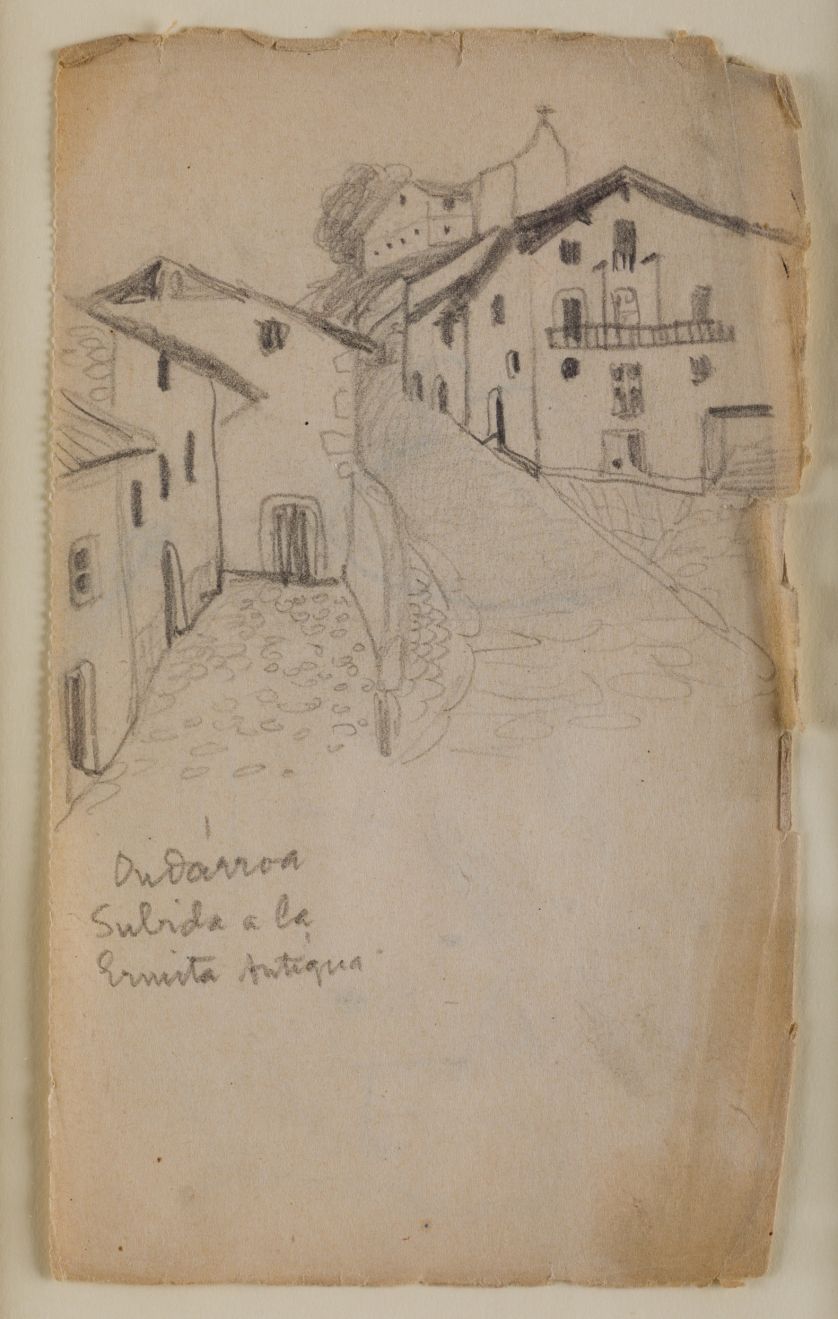 Ondárroa
Subida a la
Ermita Antigua